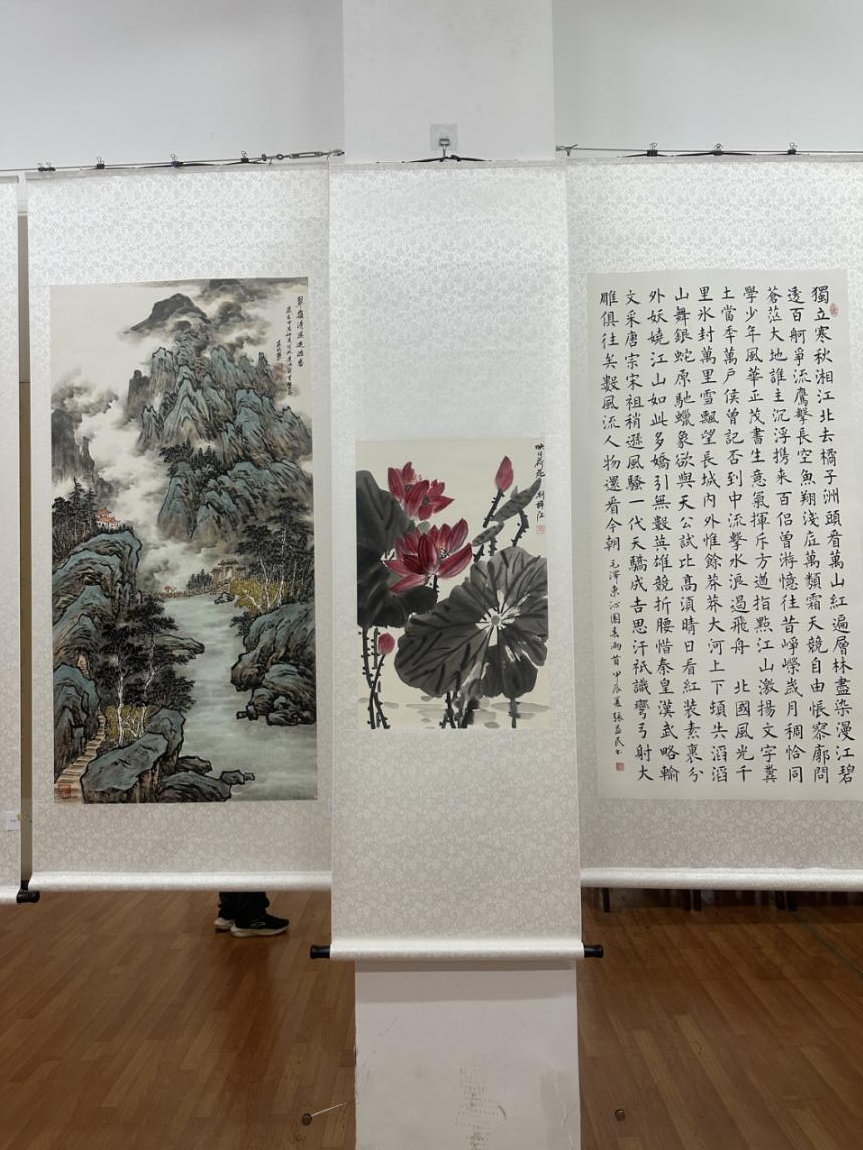 翠嶺清溪
映日荷花
獨立寒秋湘江北去橘子洲頭看萬山紅遍層林盡染漫江碧
透百舸爭流鷹擊長空魚翔淺底萬類霜天競自由悵寥廓問
蒼茫大地誰主沉浮携来百侣曾游憶往昔崢嶸歲月稠恰同
學少年風華正茂書生意氣揮斥方遒指點江山激揚文字糞
土當秊萬戶侯曾記否到中流擊水浪遏飛舟 北國風光千
里氷封萬里雪飄望長城內外惟餘莽莽大河上下頓失滔滔
山舞銀蛇原馳蠟象欲與天公試比高須晴日看紅裝素裹分
外妖嬈江山如此多嬌引無數英雄競折腰惜秦皇漢武略輸
文采唐宗宋祖稍遜風騷一代天驕成吉思汗祇識彎弓射大
雕俱往矣數風流人物還看今朝 毛澤東沁園春兩首甲辰夏張益民书